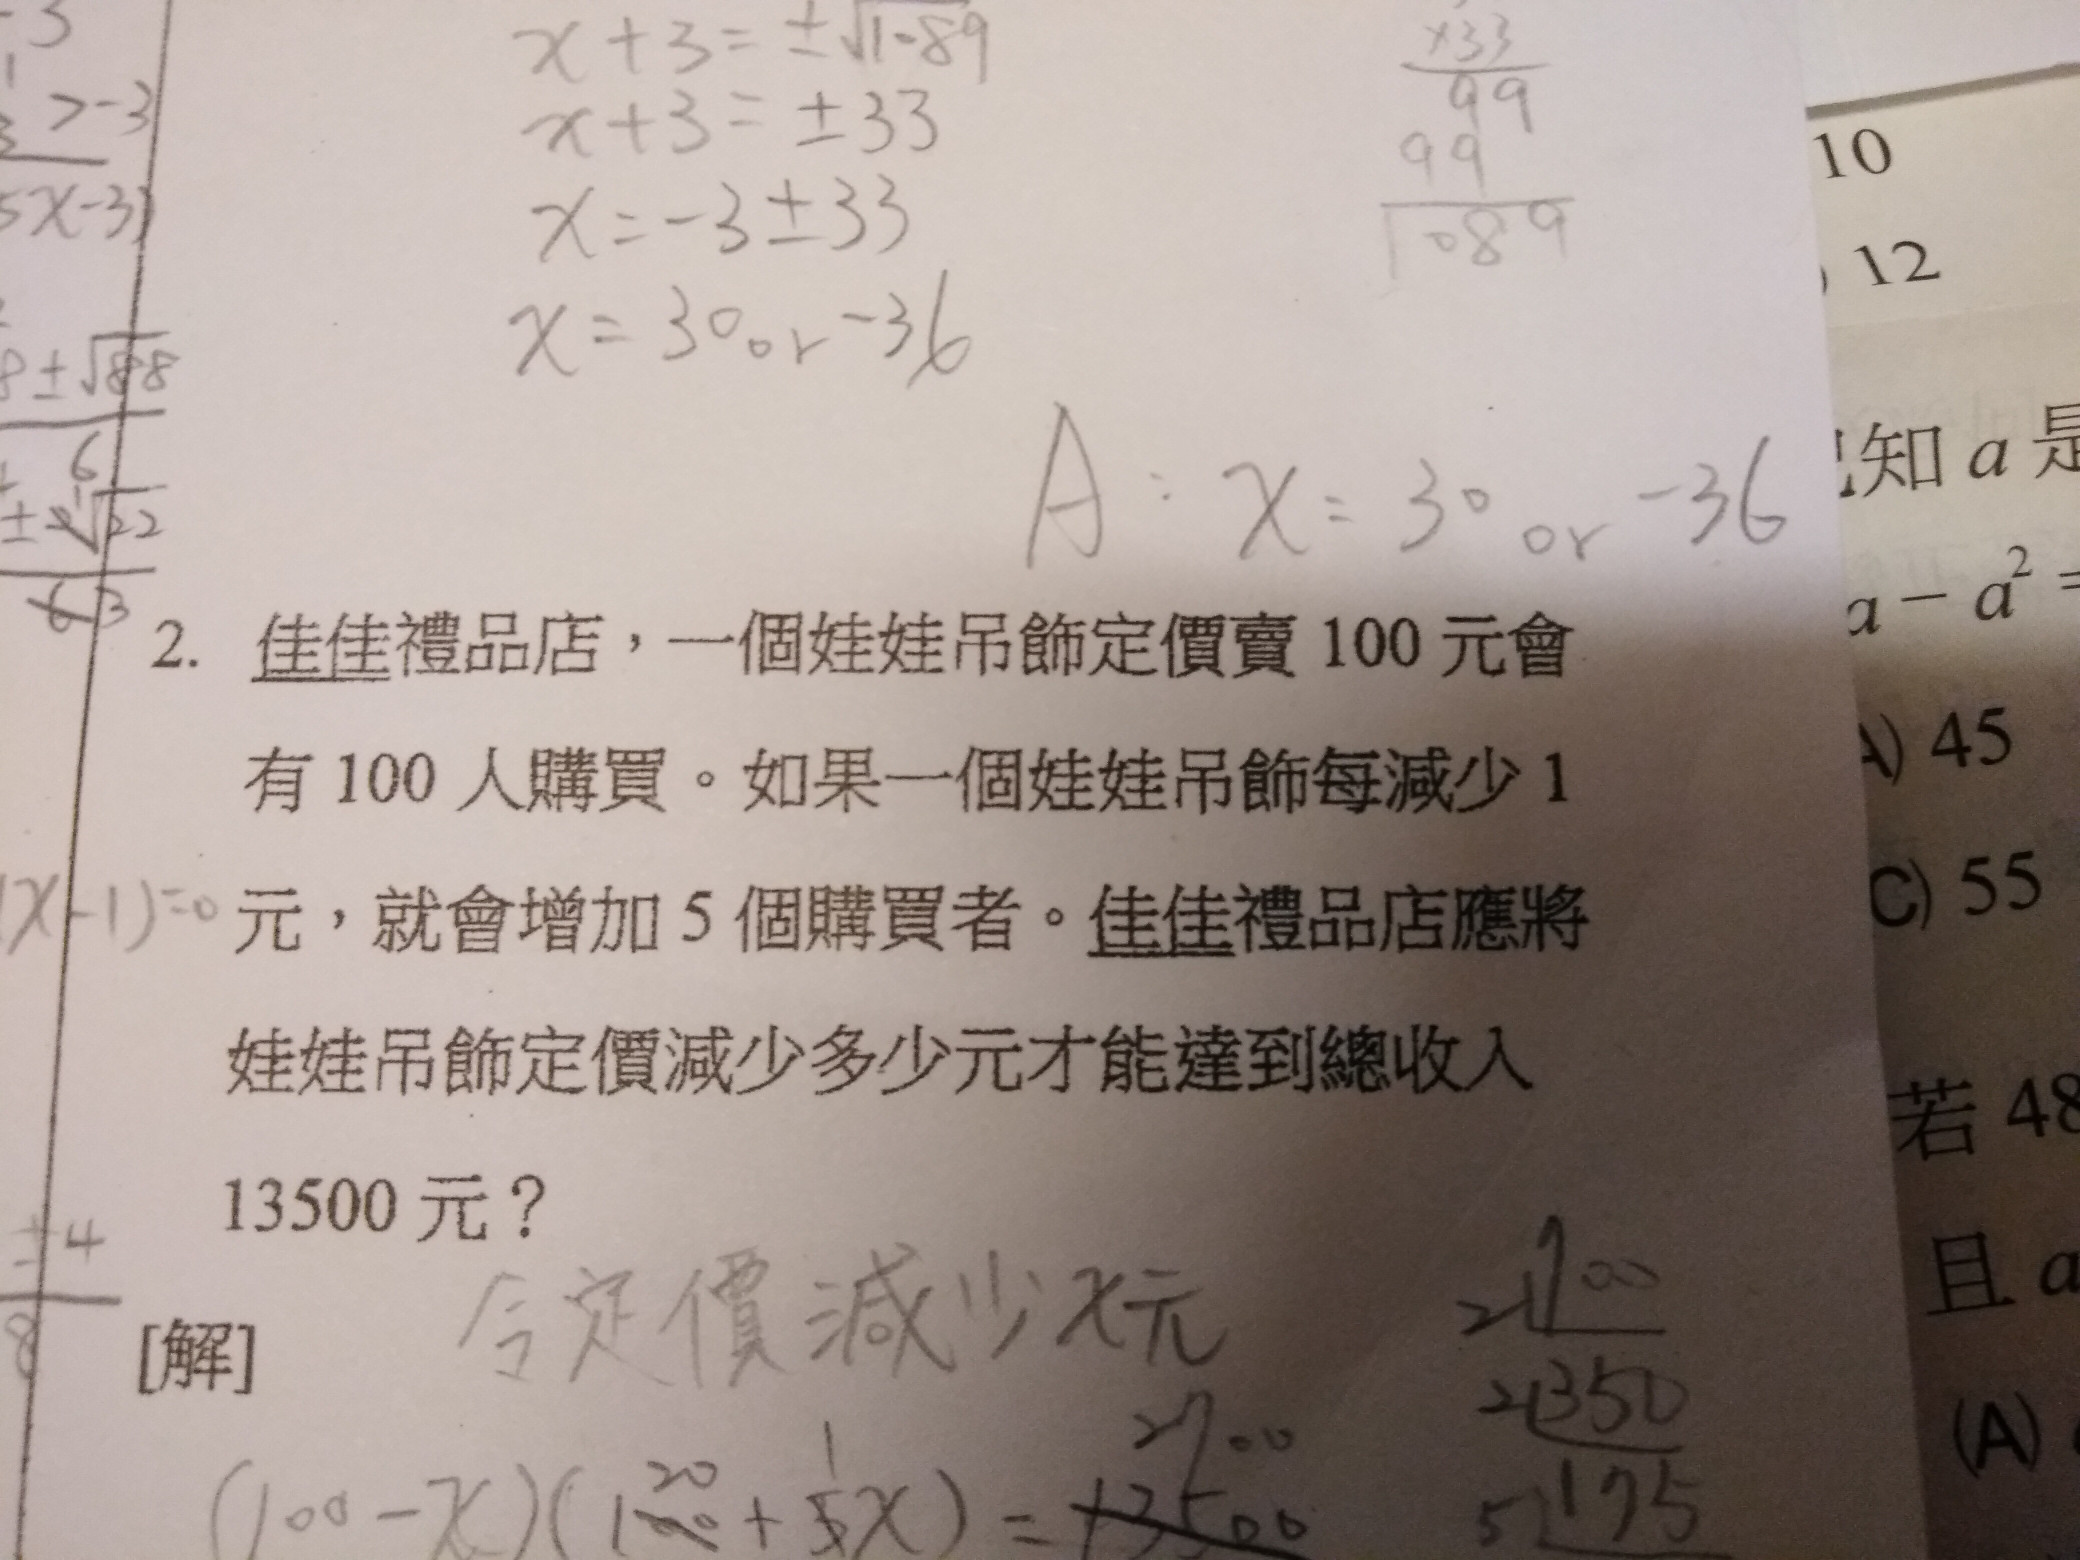 -3
x+3=±√1089
×33
x+3=±33
99
99
x=-3±33
1089
x=30 or -36
A: x=30 or -36
10
12
5x-3)
8±√88
6
±2√22
63
2. 佳佳禮品店，一個娃娃吊飾定價賣 100 元會
有 100 人購買。如果一個娃娃吊飾每減少 1
元，就會增加 5 個購買者。佳佳禮品店應將
娃娃吊飾定價減少多少元才能達到總收入
13500 元？
(x-1)=0
±4
8
[解]
令定價減少x元
2700
(100-x)(100+5x)=13500
20
1
2 700
2 350
5 175
知 a 是
a − a² =
A) 45
C) 55
若 48
且 a
(A)